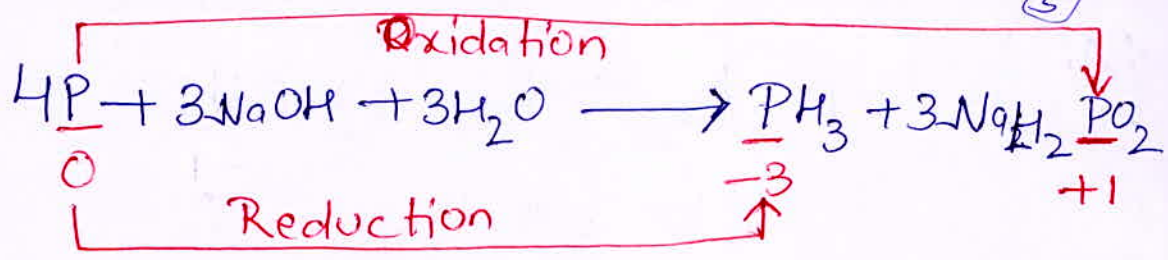 Oxidation
4P + 3NaOH + 3H₂O ⟶ PH₃ + 3NaH₂PO₂
0 -3 +1
Reduction